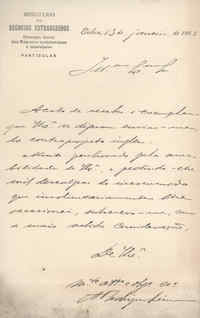 MINISTERIO
DOS
NEGOCIOS ESTRANGEIROS
Direcção Geral
dos Negocios commerciaes
e consulares
PARTICULAR
13 de janeiro de
Acabo de receber o exemplar
que V. Ex.ª se dignou enviar-me
do contraprojecto inglez.
Muito penhorado pela ama-
bilidade de V. Ex.ª, e pedindo-lhe
mil desculpas do incommodo
que involuntariamente lhe
occasionei, subscrevo-me, com
a mais subida consideração,
De V. Ex.ª